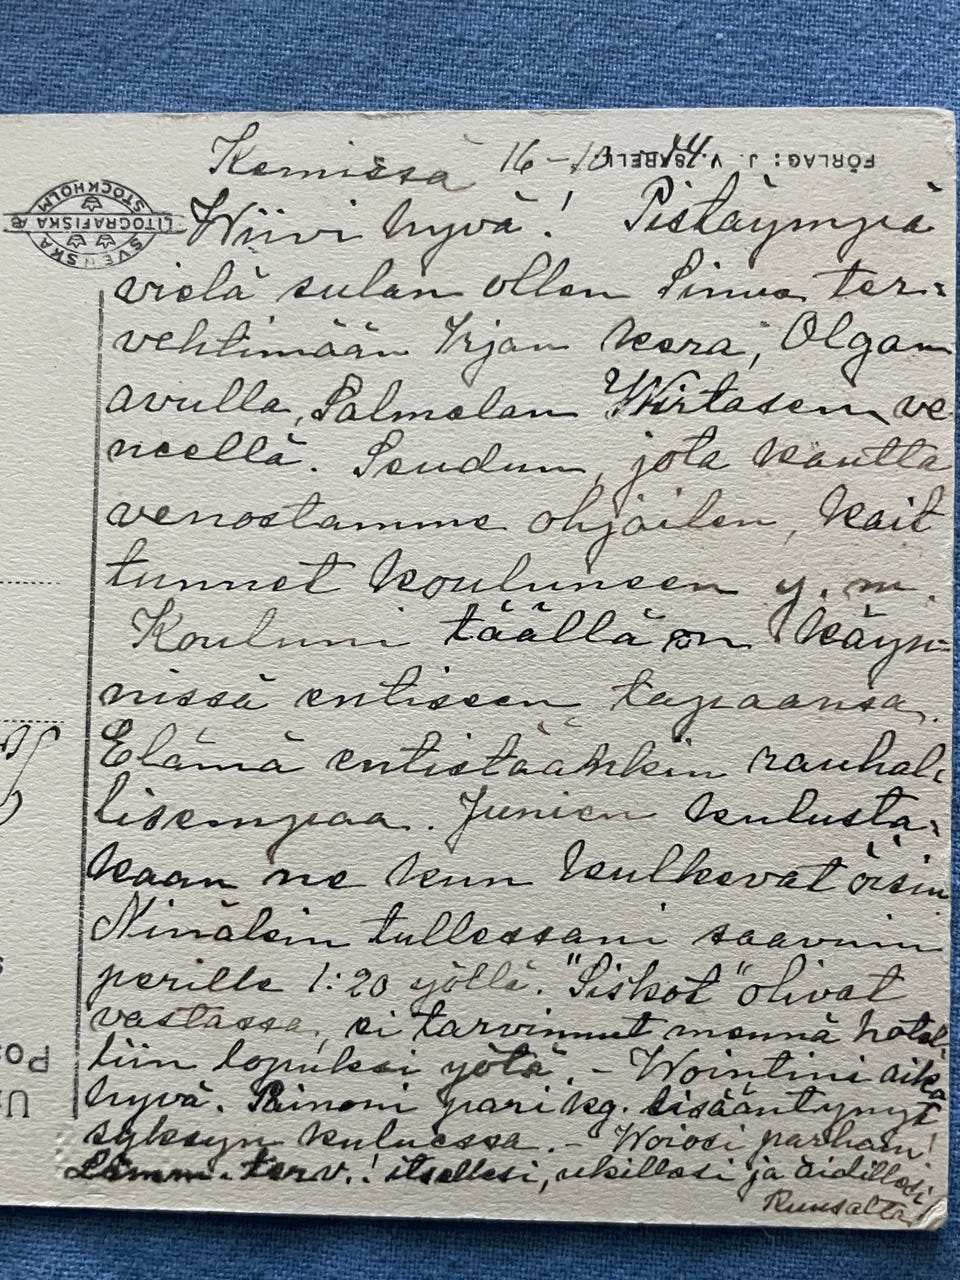 Kemissä 16-10-44
FÖRLAG: J. V. ISABELL
SVENSKA LITOGRAFISKA AB STOCKHOLM
Wiivi hyvä! Pistäympiä
vielä sulan ollen Sinua ter-
vehtimään Irjan kera, Olgan
avulla, Salmelan Wirtasen ve
neellä. Seudun, jota kautta
venostamme ohjailen, kait
tunnet kouluneen y.m.
Kouluni täällä on käyn-
nissä entiseen tapaansa.
Elämä entistäänkin rauhal-
lisempaa. Junien kulusta-
kaan ne kun kulkevat öisin
Minäkin tullessani saavuin
perille 1:20 yöllä. "Siskot" olivat
vastassa, ei tarvinnut mennä hotel
liin lopuksi yötä. - Wointini aika
hyvä. Painoni pari kg. lisääntynyt
syksyn kuluessa. - Woiosi parhain!
Lämm. terv.! itsellesi, ukillesi ja äidillesi!
Ruusalta